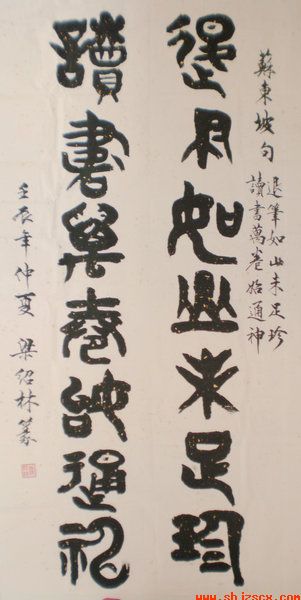 蘇東坡句
退筆如山未足珍
讀書萬卷始通神
退筆如山未足珍
讀書萬卷始通神
壬辰年仲夏 梁紹林篆